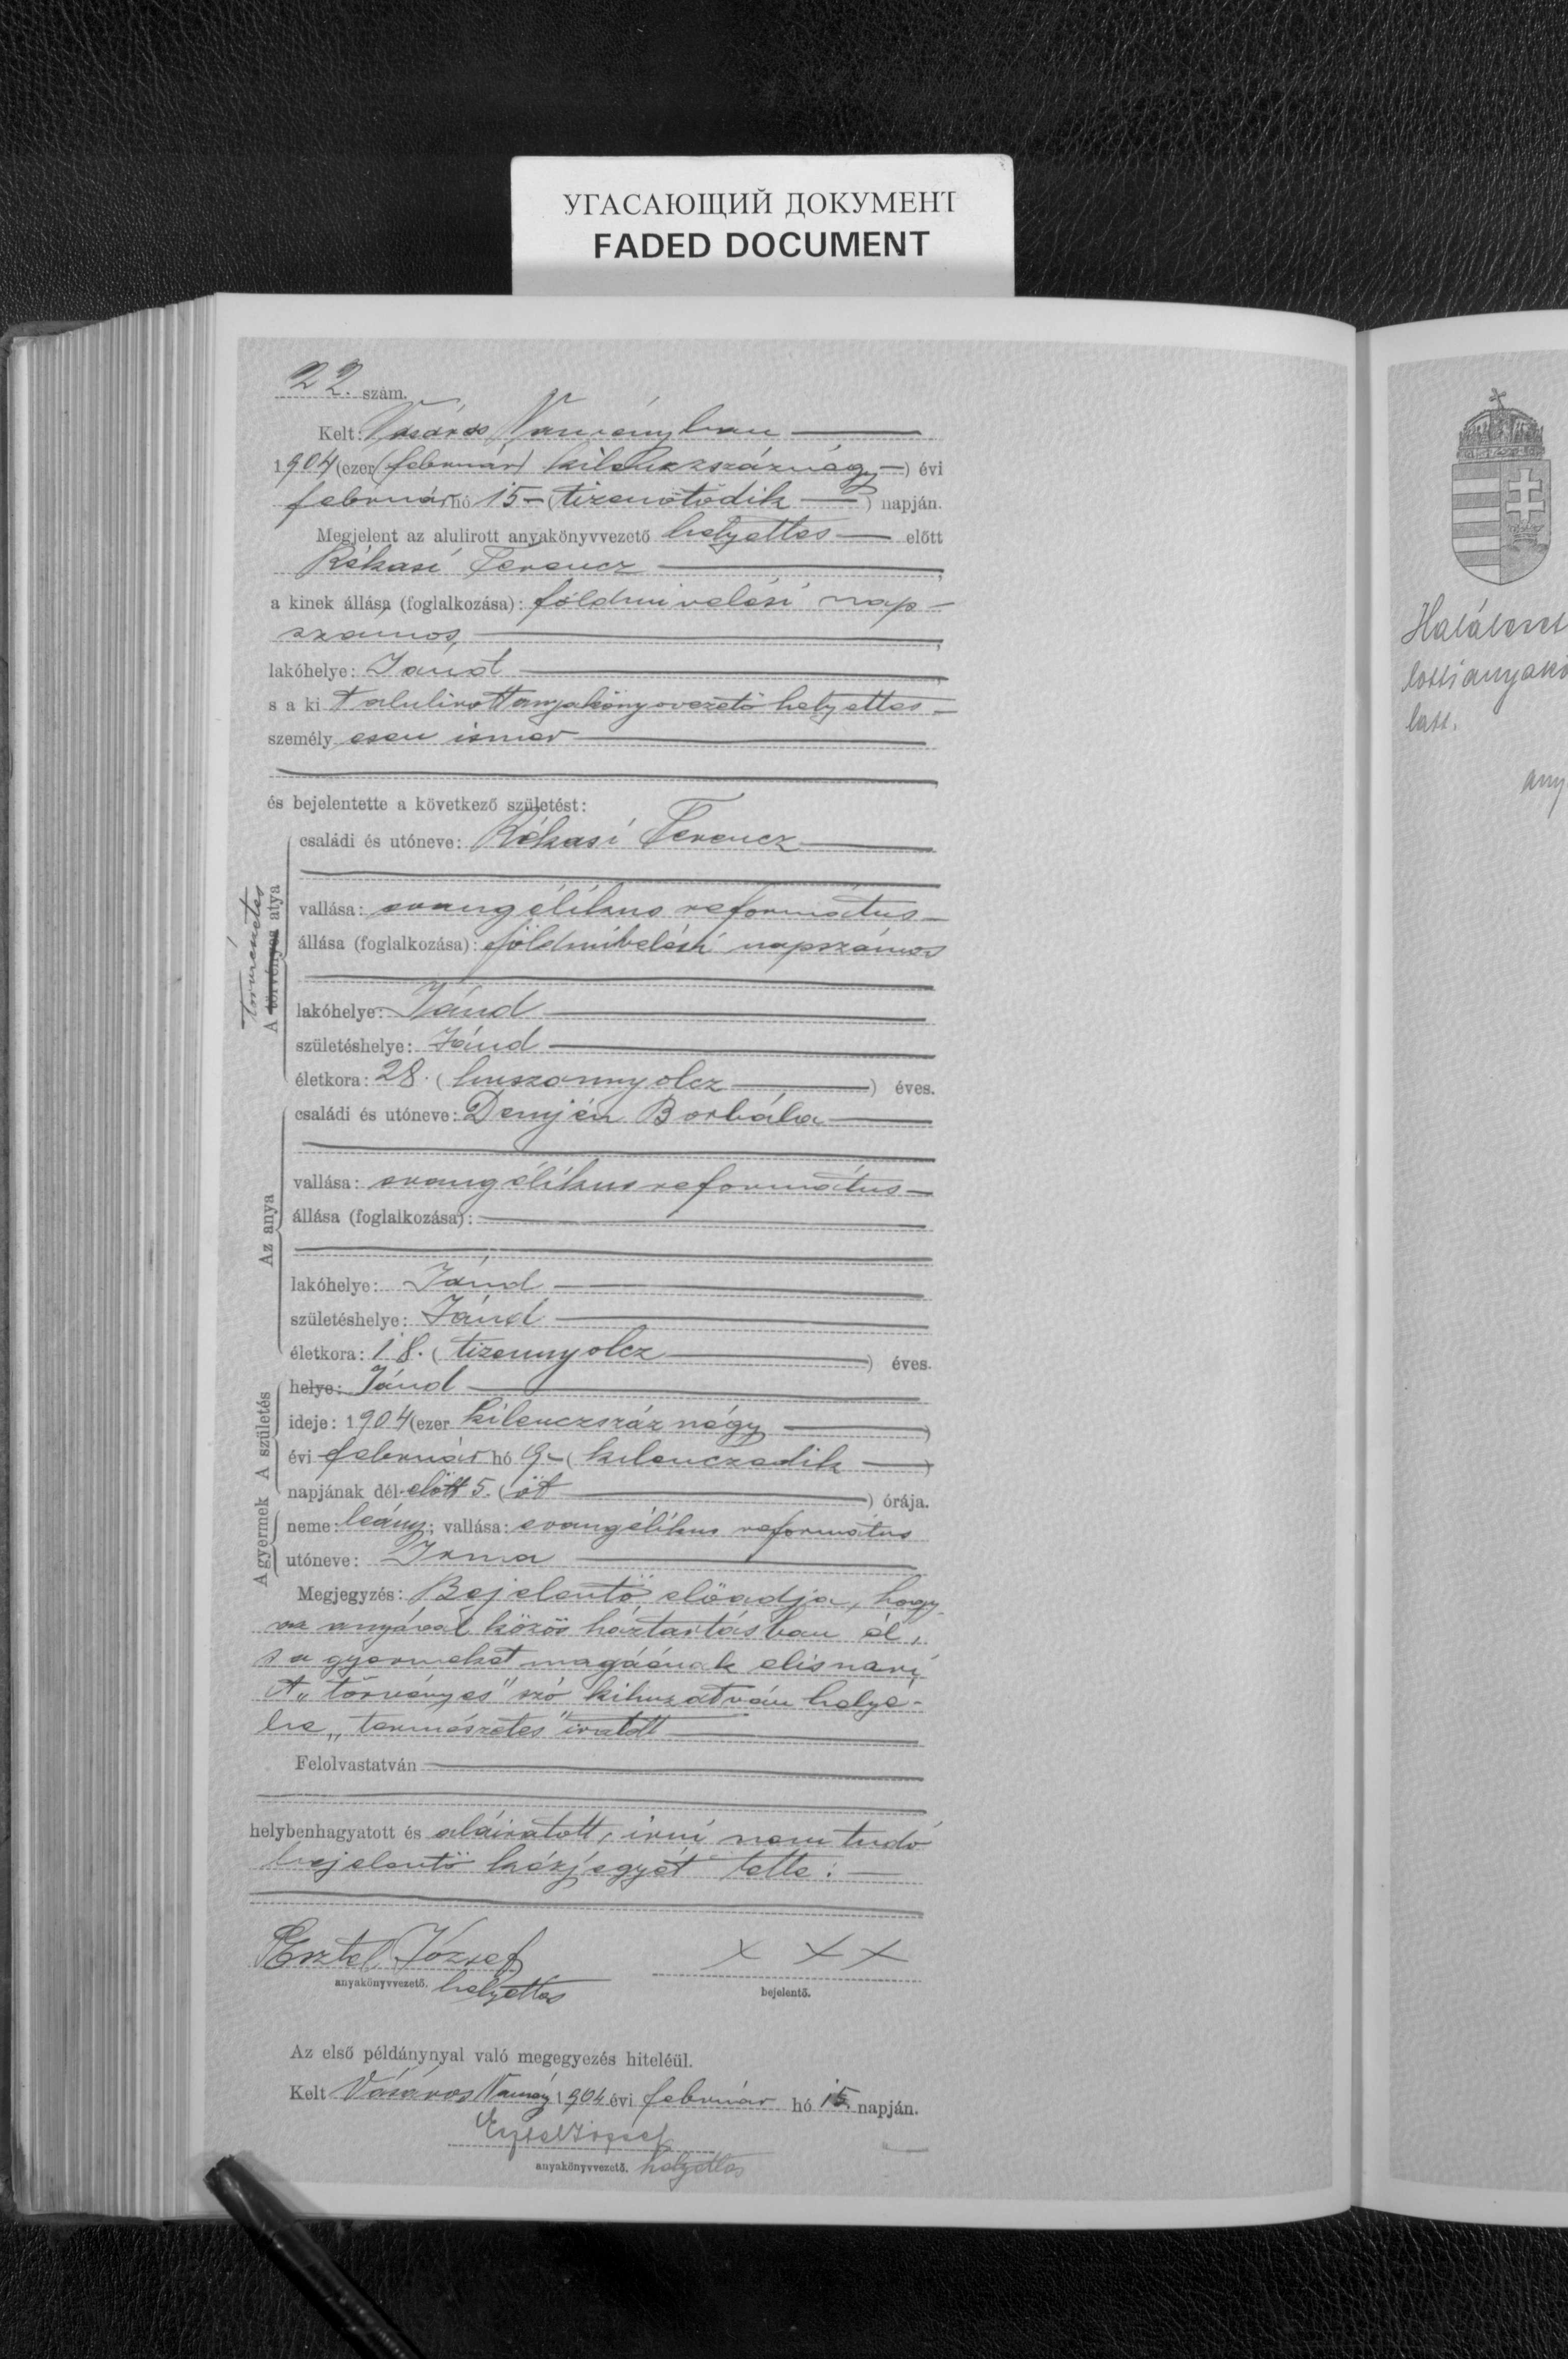 УГАСАЮЩИЙ ДОКУМЕНТ
FADED DOCUMENT
22. szám.
Kelt: Vásáros Naményban
1904 (ezer (február) kilenczszáznégy) évi
február hó 15 (tizenötödik) napján.
Megjelent az alulirott anyakönyvvezető helyettes előtt
Rékasi Ferencz,
a kinek állása (foglalkozása): földmivelési nap-
számos,
lakóhelye: Jánd,
s a ki t alulirott anyakönyvvezető helyettes
személy esen ismer
és bejelentette a következő születést:
A törvényes atya
természetes
családi és utóneve: Rékasi Ferencz
vallása: evangélikus református
állása (foglalkozása): földmivelési napszámos
lakóhelye: Jánd
születéshelye: Jánd
életkora: 28. (huszonnyolcz) éves.
Az anya
családi és utóneve: Demjén Borbála
vallása: evangélikus református
állása (foglalkozása):
lakóhelye: Jánd
születéshelye: Jánd
életkora: 18. (tizennyolcz) éves.
A születés
helye: Jánd
ideje: 1904 (ezer kilenczszáz négy)
évi február hó 9 (kilenczedik)
napjának dél előtt 5. (öt) órája.
A gyermek
neme: leány; vallása: evangélikus református
utóneve: Irma
Megjegyzés: Bejelentő előadja, hogy
az anyával közös háztartásban él,
s a gyermeket magáénak elismeri
A „törvényes" szó kihuzatván helye-
be „természetes" iratott
Felolvastatván
helybenhagyatott és aláiratott, irni nem tudó
bejelentő kézjegyét tette:
Esztel József
x x x
anyakönyvvezető. helyettes
bejelentő.
Az első példánynyal való megegyezés hiteléül.
Kelt Vásáros Namény 1904 évi február hó 15. napján.
Esztel József
anyakönyvvezető. helyettes
Haláleset